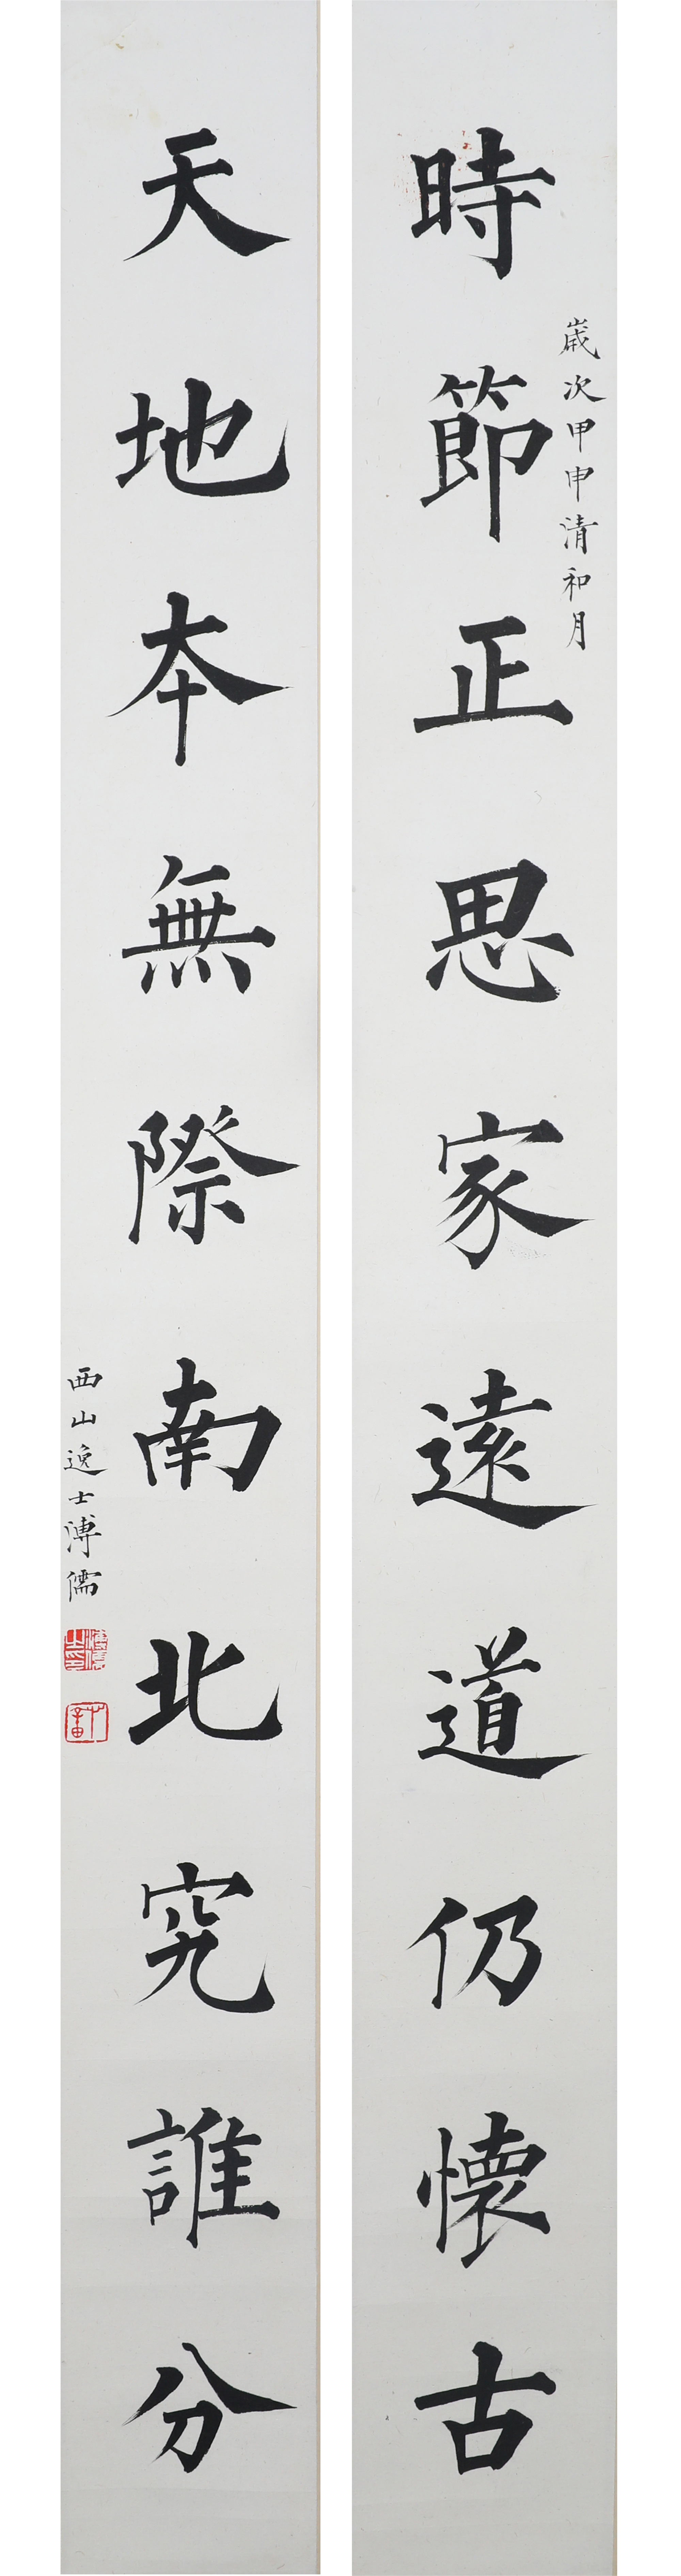 歲次甲申清和月
時節正思家遠道仍懷古
天地本無際南北究誰分
西山逸士溥儒